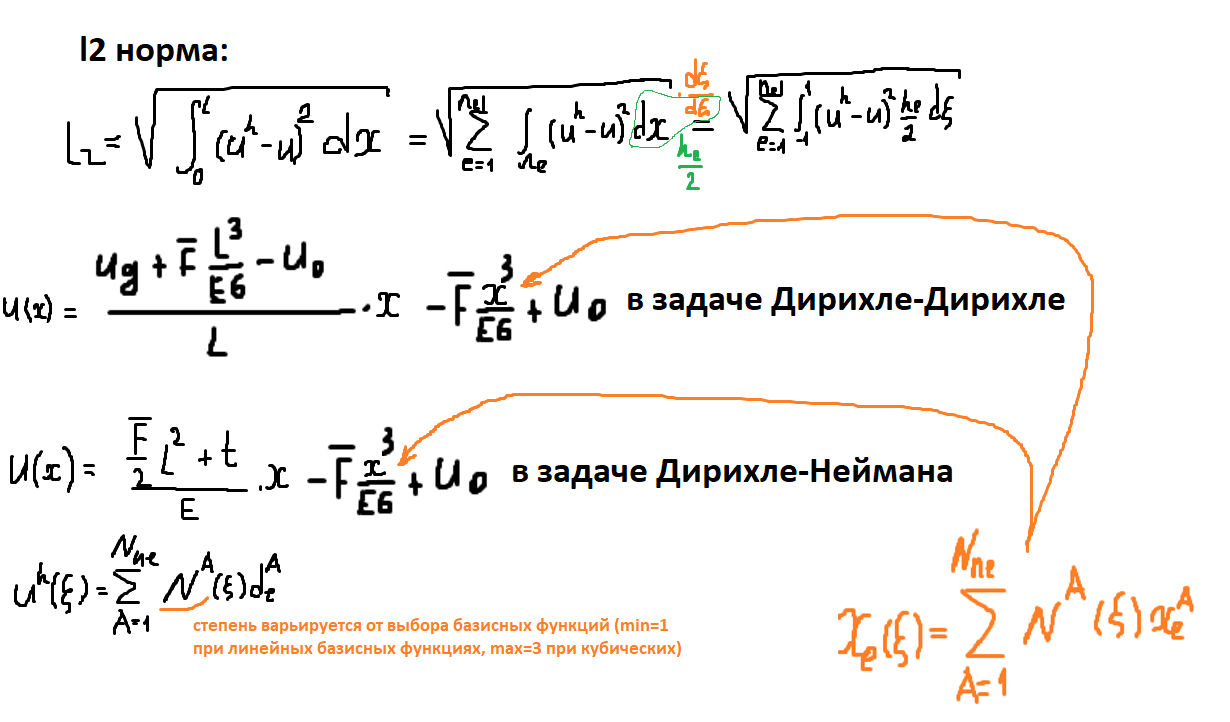 l2 норма:
L₂ = √(∫₀ᴸ (uʰ-u)² dx) = √(∑ₑ₌₁ⁿᵉˡ ∫Ωₑ (uʰ-u)² dx · dξ/dξ) = √(∑ₑ₌₁ⁿᵉˡ ∫₋₁¹ (uʰ-u)² hₑ/2 dξ)
hₑ/2
u(x) = (u_g + F̅ L³/E6 - u₀)/L · x - F̅ x³/E6 + u₀ в задаче Дирихле-Дирихле
u(x) = (F̅/2 L² + t)/E · x - F̅ x³/E6 + u₀ в задаче Дирихле-Неймана
uʰ(ξ) = ∑_{A=1}^{Nne} Nᴬ(ξ)dₑᴬ
степень варьируется от выбора базисных функций (min=1
при линейных базисных функциях, max=3 при кубических)
xₑ(ξ) = ∑_{A=1}^{Nne} Nᴬ(ξ)xₑᴬ